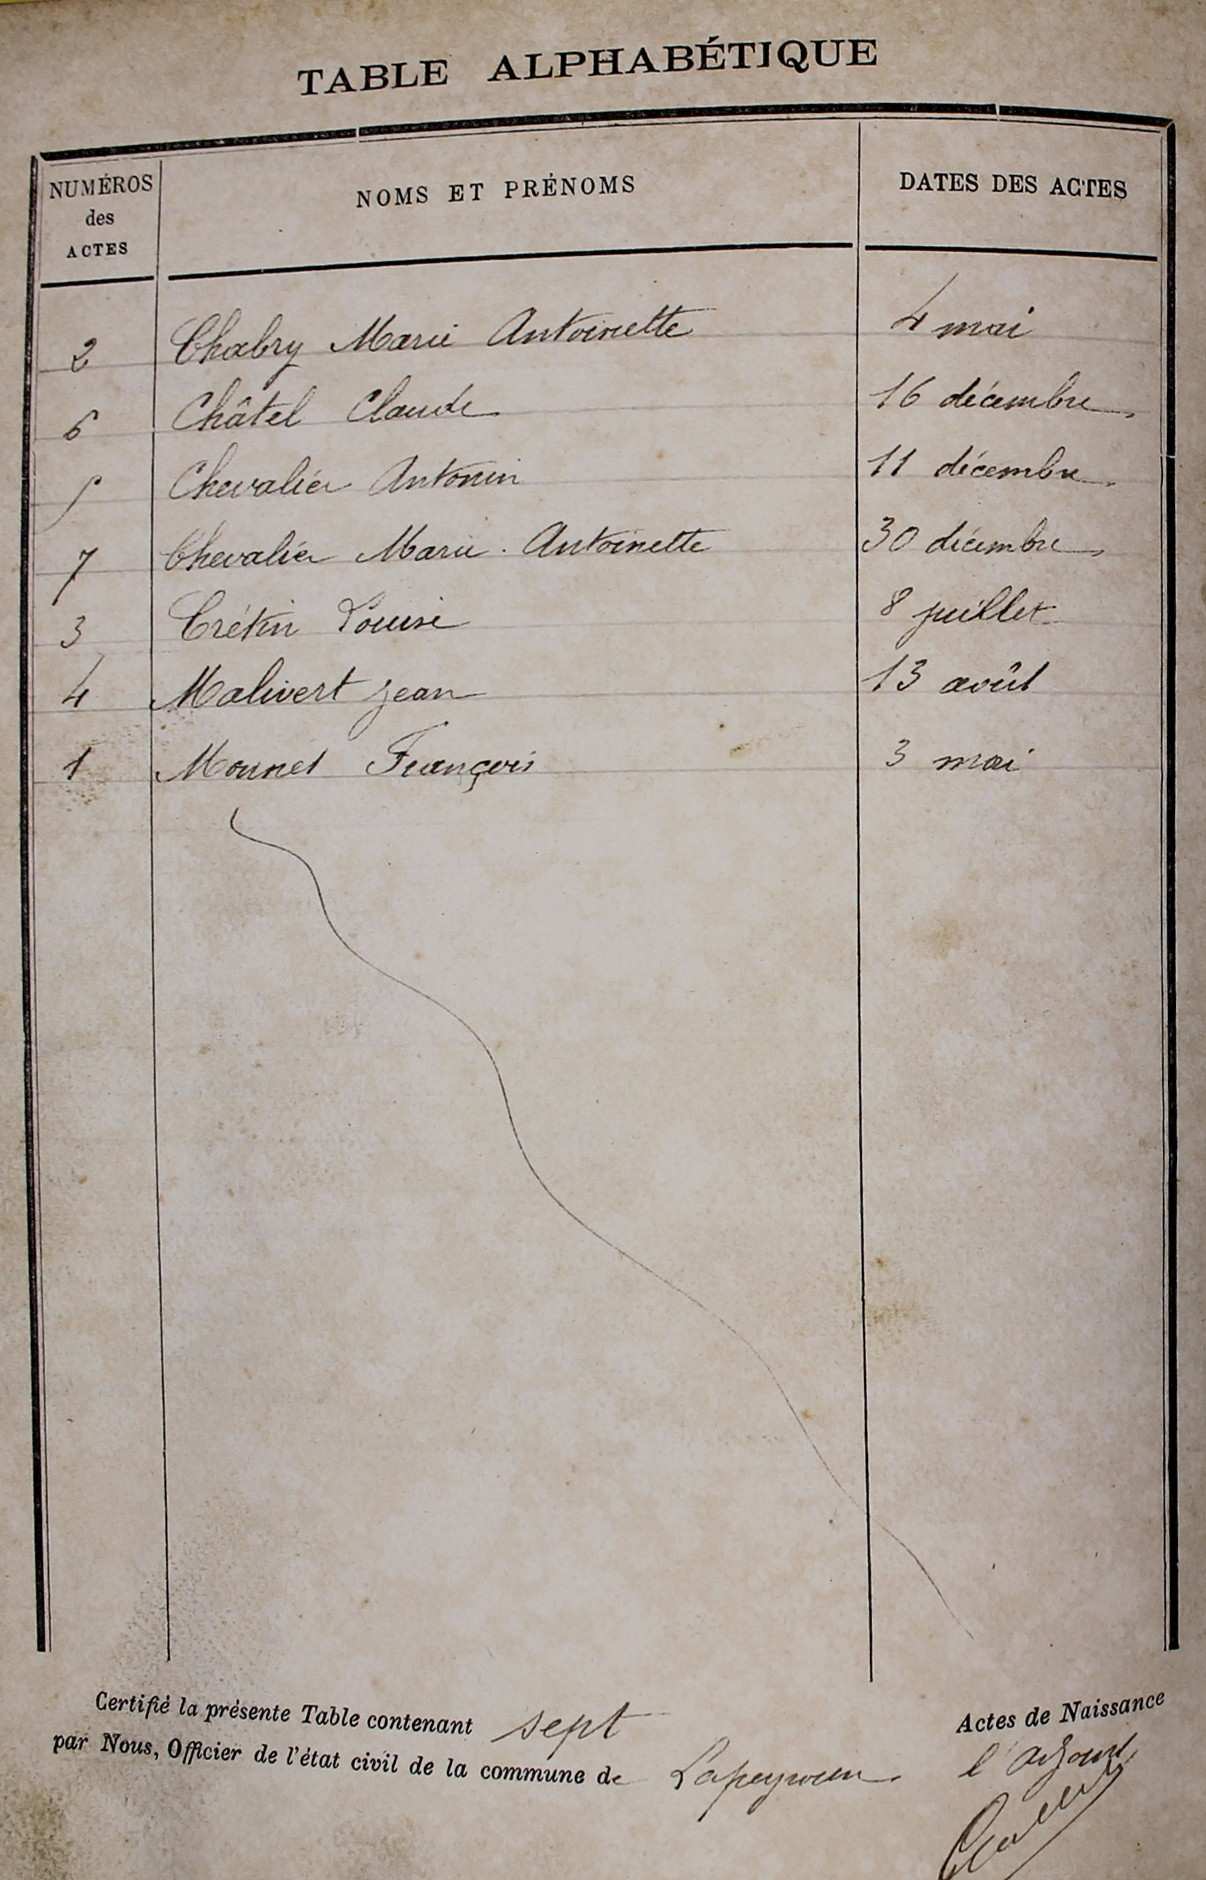 TABLE ALPHABÉTIQUE
NUMÉROS des ACTES NOMS ET PRÉNOMS DATES DES ACTES
2 Chabry Marie Antoinette 4 mai
6 Châtel Claude 16 décembre
5 Chevalier Antonin 11 décembre
7 Chevalier Marie Antoinette 30 décembre
3 Crétin Louise 8 juillet
4 Malivert Jean 13 août
1 Monnet François 3 mai
Certifié la présente Table contenant sept Actes de Naissance
par Nous, Officier de l'état civil de la commune de Lapeyrouse l'adjoint